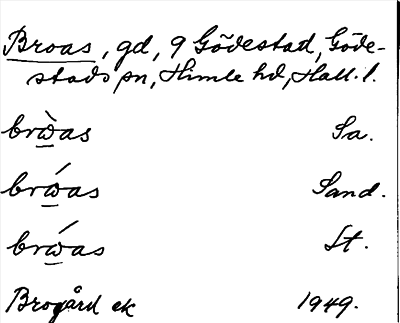 Broas, gd, 9 Gödestad, Göde-
stads sn, Himle hd, Hall. l.
brẁas Sa.
brẃas Sand.
brẃas St.
Brogård ek 1949.